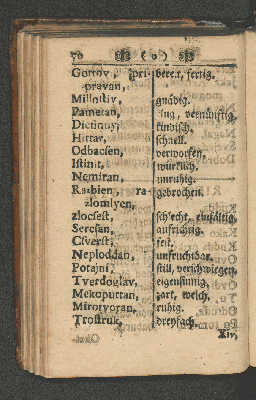 70 ( o )
Gottov, pri- bereit, fertig.
pravan,
Millostiv, gnädig.
Pametan, klug, vernünftig.
Dietinny, kindisch.
Hittar, schnell.
Odbacsen, verworfen.
Istinit, würklich.
Nemiran, unruhig.
Razbien, ra- gebrochen.
zlomlyen,
zlocsest, schlecht, einfältig,
Sercsan, aufrichtig.
Csverst, fest.
Neploddan, unfruchtbar.
Potajni, still, verschwiegen,
Tverdoglav, eigensinnig,
Mekoputtan, zart, weich.
Mirotvoran, ruhig.
Trostruk, dreyfach.
Xiv,